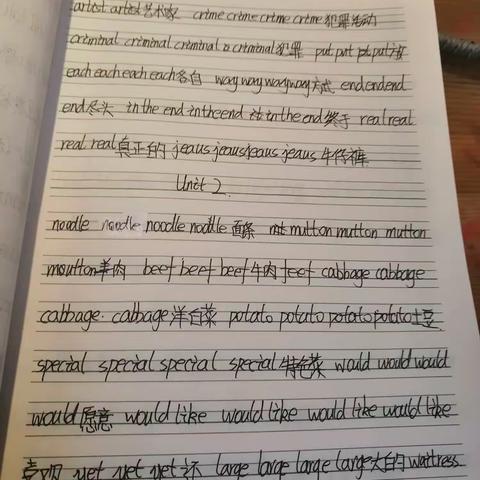 artist artist 艺术家 crime crime crime crime 犯罪活动
criminal criminal criminal a criminal 犯罪 put put put put 放
each each each each 各自 way way way way 方式 end end end
end 尽头 in the end in the end in the end 终于 real real
real real 真正的 jeaus jeaus jeaus jeaus 牛仔裤
Unit 2
noodle noodle noodle noodle 面条 mutton mutton mutton
moutton 羊肉 beef beef beef 牛肉 feef cabbage cabbage
cabbage. cabbage 洋白菜 potato potato potato potato 土豆
special special special special 特色菜 would would would
would 愿意 would like would like would like would like
喜欢 yet yet yet 还 large large large large 大的 waitress